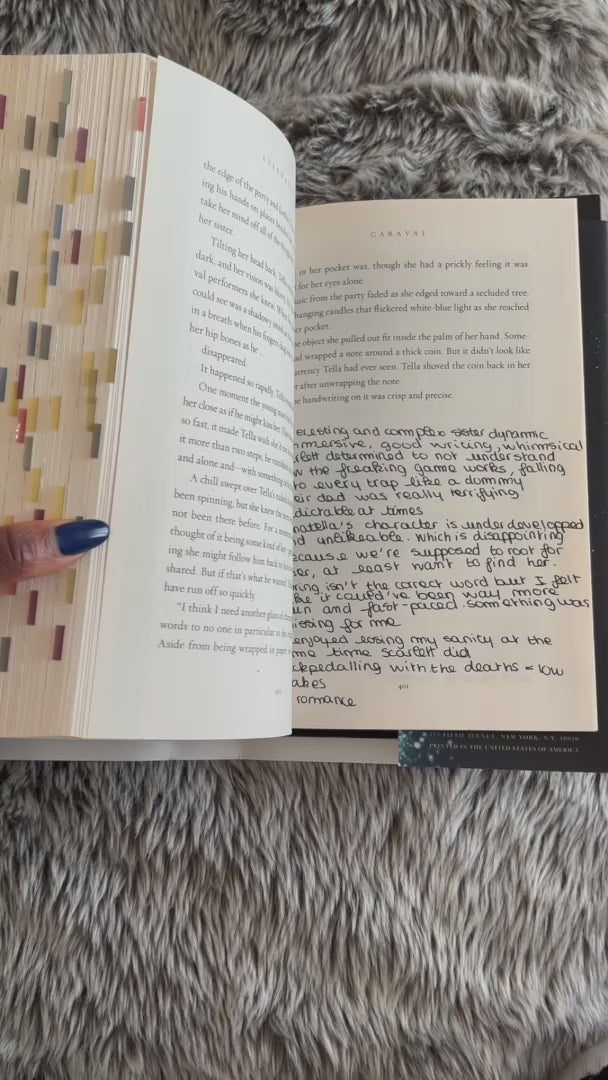 the edge of the party and
ing his hands on places
take her mind off all of the things
her sister.
Tilting her head back, Tella
dark, and her vision was
val performers she knew.
could see was a shadowy
in a breath when his fingers
her hip bones as he
disappeared.
It happened so rapidly, Tella
One moment the young man
her close as if he might kiss her. Then
so fast, it made Tella wish she'd
it more than two steps, he vanished
and alone and—with something
A chill swept over Tella's
been spinning, but she knew the
not been there before. For a moment
thought of it being some kind of
ing she might follow him back to
shared. But if that's what he wanted
have run off so quickly.
"I think I need another glass of
words to no one in particular as she
Aside from being wrapped in paper
CARAVAL
in her pocket was, though she had a prickly feeling it was
for her eyes alone.
usic from the party faded as she edged toward a secluded tree,
hanging candles that flickered white-blue light as she reached
er pocket.
e object she pulled out fit inside the palm of her hand. Some-
ad wrapped a note around a thick coin. But it didn't look like
urrency Tella had ever seen. Tella shoved the coin back in her
t after unwrapping the note.
e handwriting on it was crisp and precise.
eresting and complex sister dynamic
mmersive, good writing, whimsical
rlett determined to not understand
w the freaking game works, falling
to every trap like a dummy
eir dad was really terrifying
dictable at times
natella's character is underdeveloped
d unlikeable. Which is disappointing
ecause we're supposed to root for
er, at least want to find her.
ring isn't the carect word but I felt
ke it could've been way more
un and fast-paced. something was
issing for me
enjoyed losing my sanity at the
me time scarlett did
ckpedalling with the deaths = low
akes
romance
401
175 FIFTH AVENUE, NEW YORK, N.Y. 10010
PRINTED IN THE UNITED STATES OF AMERICA